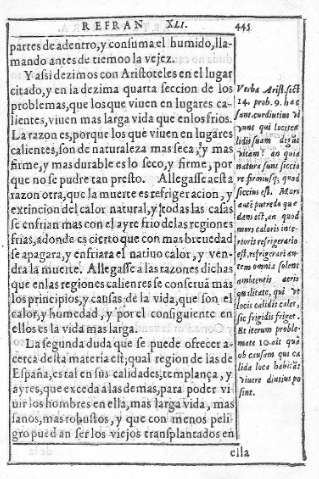 REFRAN XLI. 445
partes de adentro, y consuma el humido, lla-
mando antes de tiempo la vejez.
Y assi dezimos con Aristoteles en el lugar
citado, y en la dezima quarta seccion de los
problemas, que los que viuen en lugares ca-
lientes, viuen mas larga vida que en los frios.
La razon es, porque los que viuen en lugares
calientes, son de naturaleza mas seca, y mas
firme, y mas durable es lo seco, y firme, por
que no se pudre tan presto. Allegasse acsta
razon otra, que la muerte es refrigeracion, y
extincion del calor natural, y todas las casas
se enfrian mas con el ayre frio de las regiones
frias, adonde es cierto que con mas breuedad
se apagara, y enfriara el natiuo calor, y ven-
dra la muerte. Allegasse a las razones dichas
que en las regiones calientes se conseruã mas
los principios, y causas de la vida, que son el
calor, y humedad, y por el consiguiente en
ellos es la vida mas larga.
La segunda duda que se puede ofrecer a-
cerca desta materia es; qual region de las de
España, esta en sus calidades, templança, y
ayres, que exceda a las demas, para poder vi
uir los hombres en ella, mas larga vida, mas
sanos, mas robustos, y que con menos peli-
gro puedan ser los viejos transplantados en
ella
Verba Arist. sect
14. prob. 9. hac
sunt. cur diutius vi
uunt qui locis ca
lidis suam degũt
vitam? an quia
natura sunt sicciore
re firmius; quod
siccius est. Mors
aut putredo que
dam est, an quod
mors caloris inte-
rioris refrigeratio
est, refrigerari au-
tem omnia solent
ambientis aeris
qualitate, qui vt
locis calidis calet,
sic frigidis friget.
Et iterum proble-
mate 10. ait quã
ob causam qui ca
lida loca habitãt
viuere diutius po
sint.